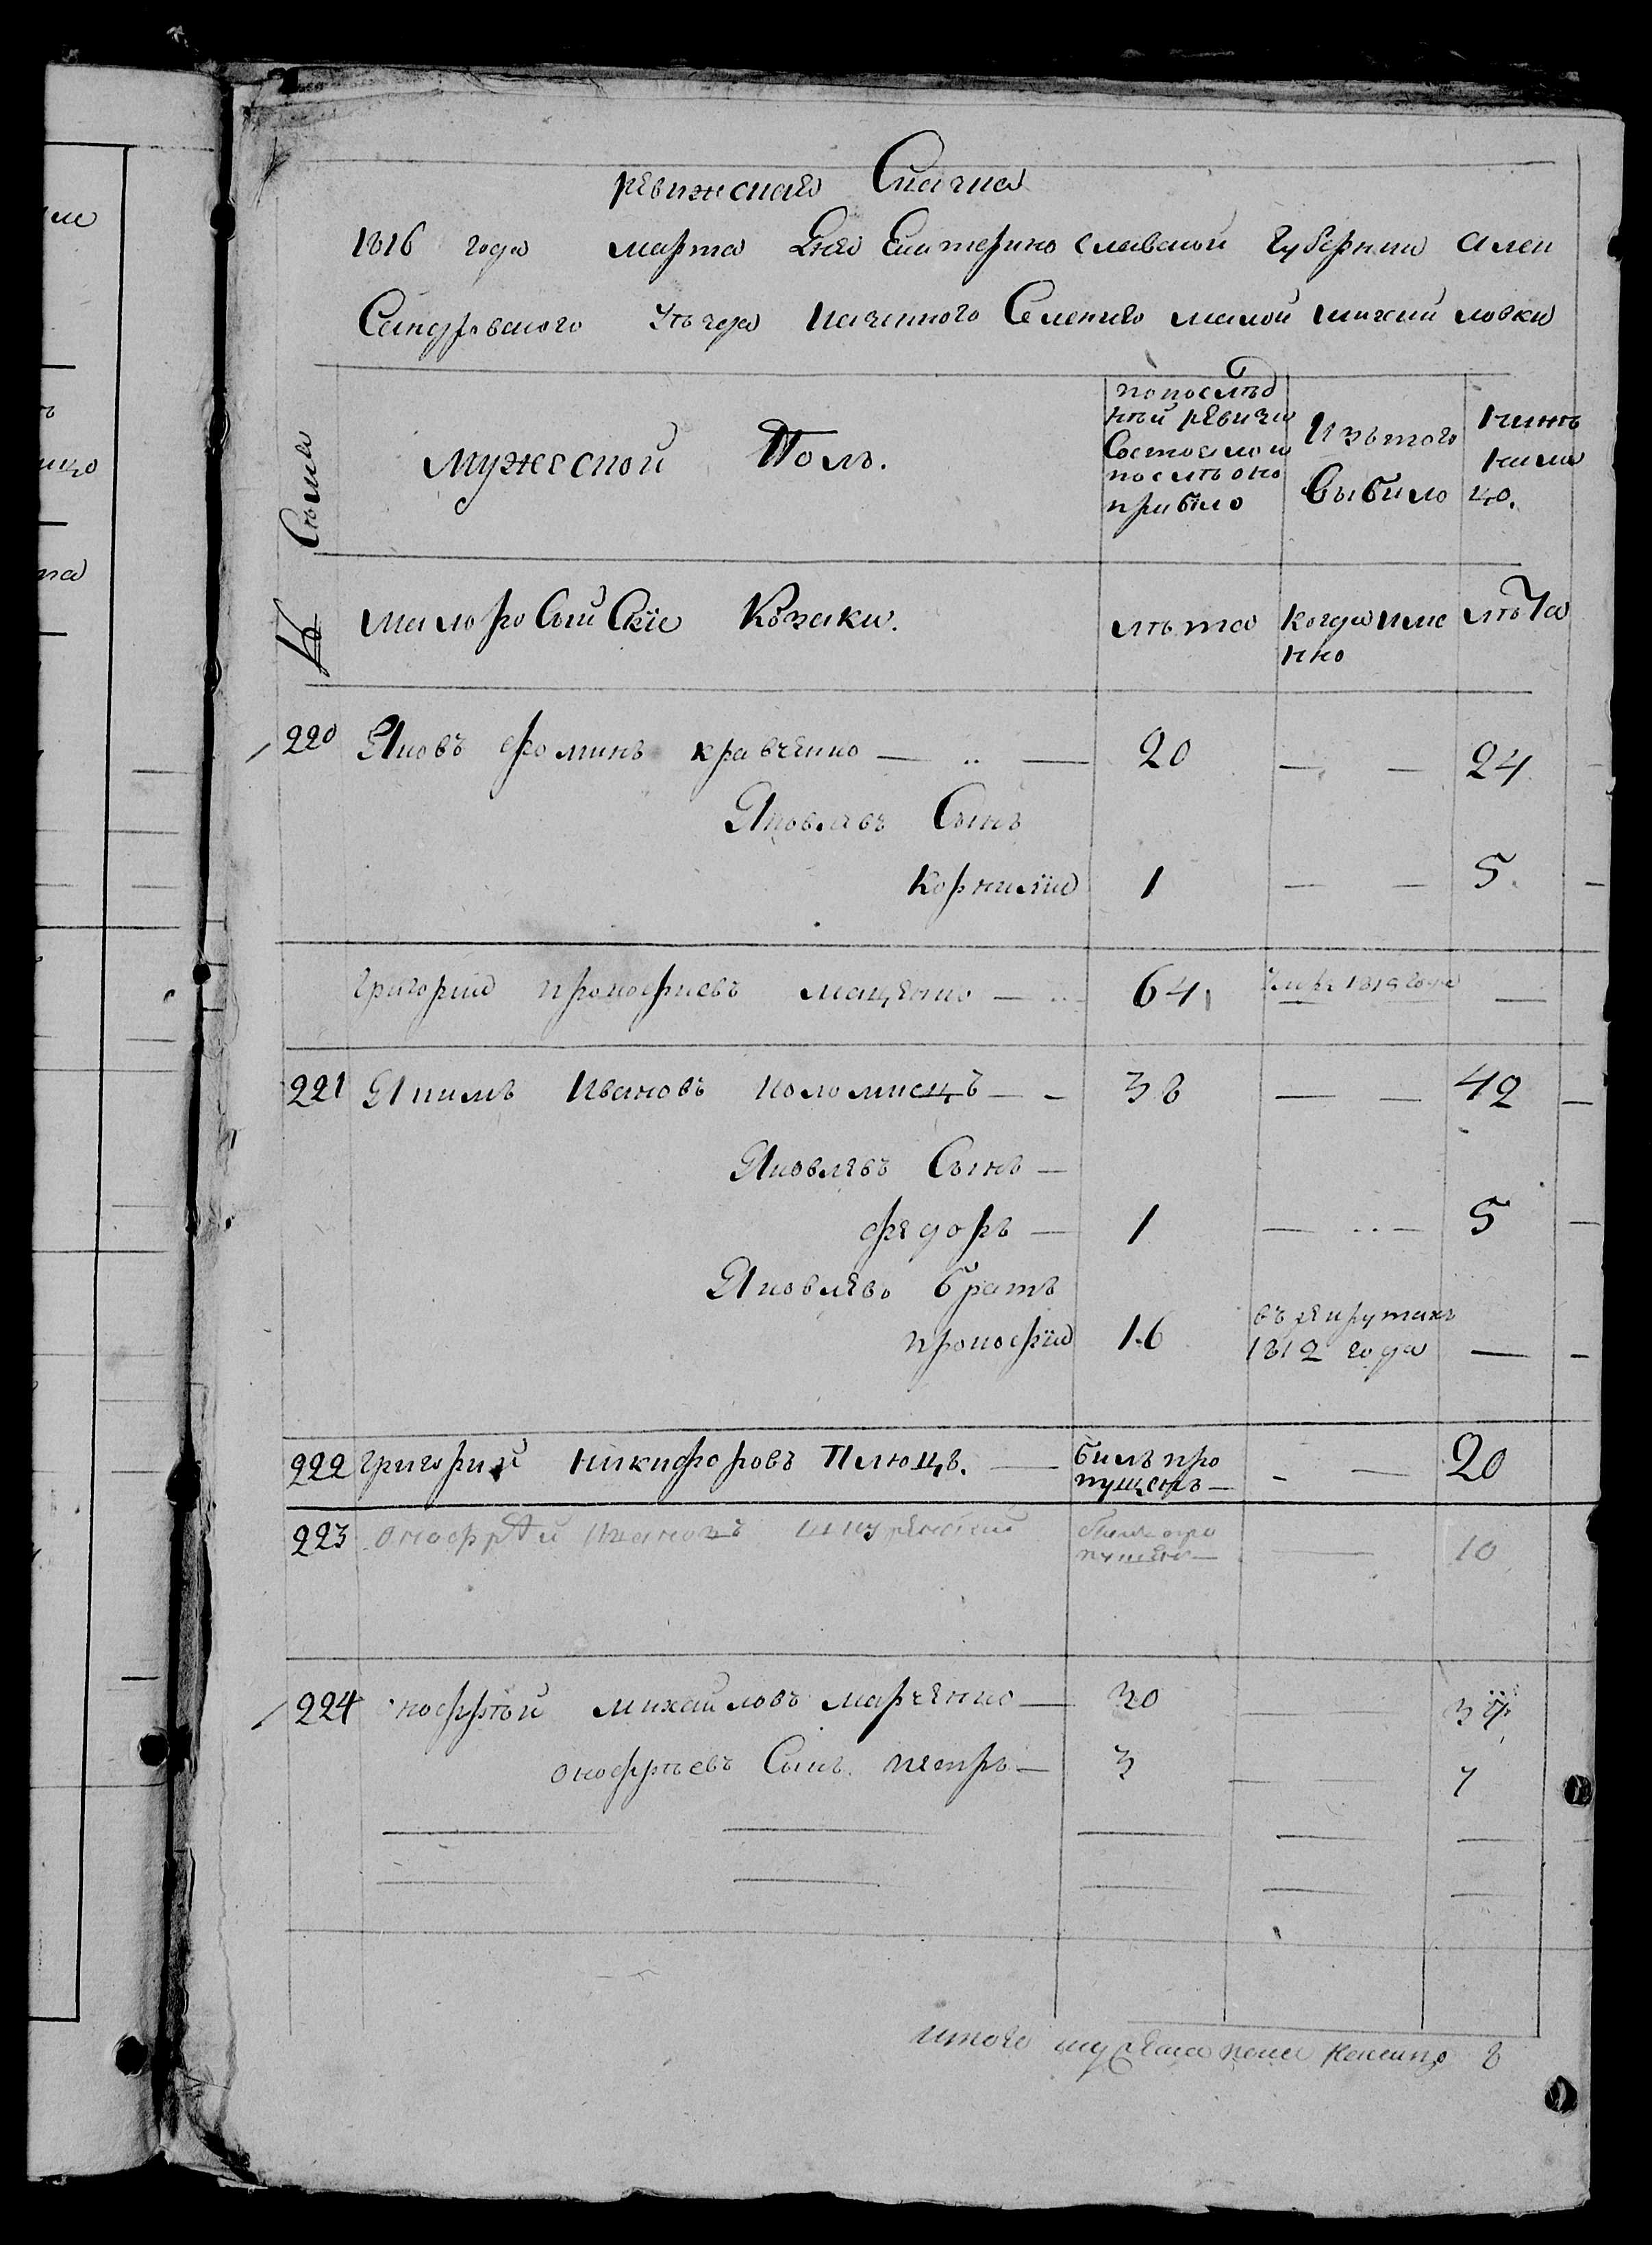 ревижская Скаска
1816 года марта Дня Екатерино славской Губернии Алек
Сандровского уѣзда казенного Селения малой михай ловки
Семьи
мужеской Полъ.
по послѣд
нѣй ревизи
Состояло и
послѣ оно
прибыло
Изъ того
Выбыло
Нинѣ
на ли
цо.
№
малоро Сѣий Скїе Козаки.
лѣта
когда име
нно
лѣта
220 Яковъ фоминъ кравченко — .. — 20 — — 24
Яковлевъ Сынъ
Корнилїй 1 — — 5
григорий прокофиевъ маценко — .. 64 умре 1812 года —
221 Якимъ Ивановъ коломиецъ — - 38 — — 42
Яковлевъ Сынъ —
федоръ — 1 — .. — 5
Яковлевъ братъ
прокофїй 16 въ рекрутахъ
1812 года —
222 григорий никифоровъ Плюцъ. — билъ про
пущенъ — - — 20
223 онофрѣй Ивановъ билъ про
пущенъ — — 10
224 нофрѣй михайловъ марченко — 30 — — 37
онофрѣевъ Сынъ петръ — 3 — — 7
итого мужеска пола налицо 8